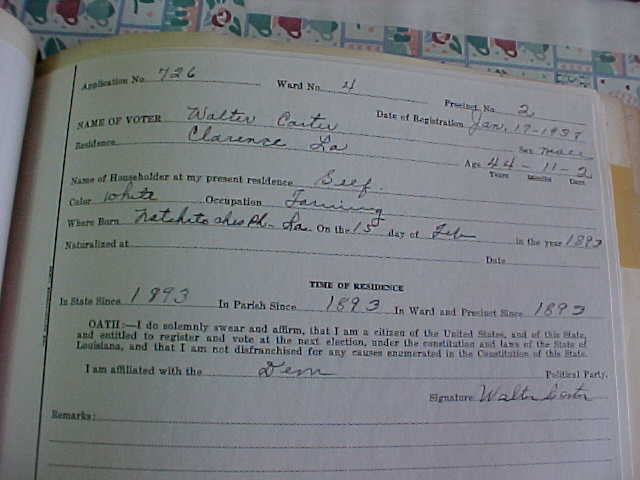 Application No. 726 Ward No. 4 Precinct No. 2
NAME OF VOTER Walter Carter Date of Registration Jan. 17-1938
Residence Clarence La Sex male
Age 44-11-2
Years Months Days
Name of Householder at my present residence Self.
Color White Occupation Farming
Where Born Natchitoches Ph. La. On the 15 day of Feb in the year 1893
Naturalized at Date
TIME OF RESIDENCE
In State Since 1893 In Parish Since 1893 In Ward and Precinct Since 1893
OATH:—I do solemnly swear and affirm, that I am a citizen of the United States, and of this State,
and entitled to register and vote at the next election, under the constitution and laws of the State of
Louisiana, and that I am not disfranchised for any causes enumerated in the Constitution of this State.
I am affiliated with the Dem Political Party.
Signature Walter Carter
Remarks: